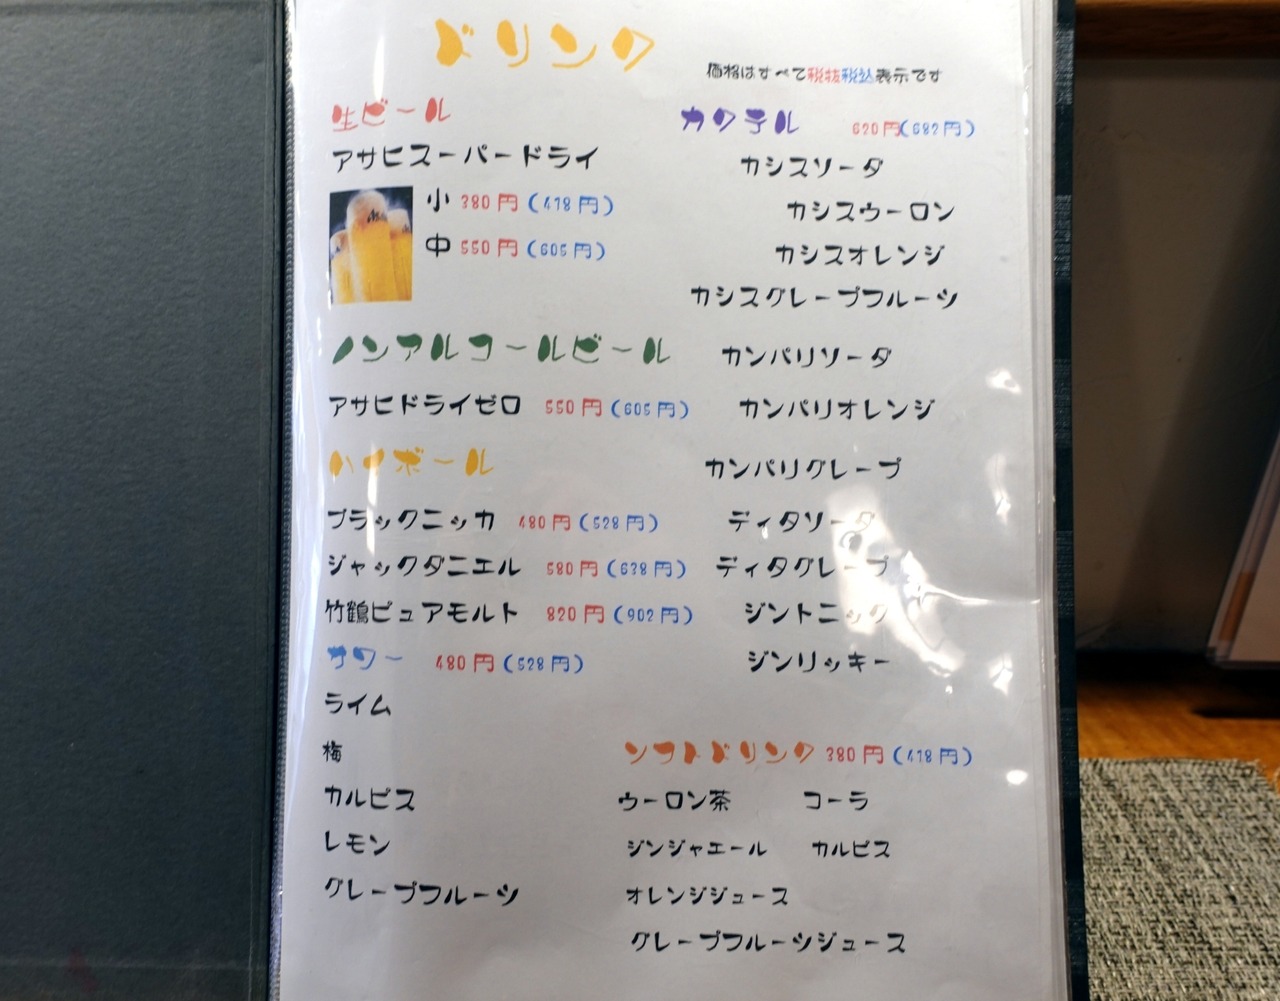 ドリンク
価格はすべて税抜税込表示です
生ビール
アサヒスーパードライ
小 380円(418円)
中 550円(605円)
ノンアルコールビール
アサヒドライゼロ 550円(605円)
ハイボール
ブラックニッカ 480円(528円)
ジャックダニエル 580円(638円)
竹鶴ピュアモルト 820円(902円)
サワー 480円(528円)
ライム
梅
カルピス
レモン
グレープフルーツ
カクテル 620円(682円)
カシスソーダ
カシスウーロン
カシスオレンジ
カシスグレープフルーツ
カンパリソーダ
カンパリオレンジ
カンパリグレープ
ディタソーダ
ディタグレープ
ジントニック
ジンリッキー
ソフトドリンク 380円(418円)
ウーロン茶 コーラ
ジンジャエール カルピス
オレンジジュース
グレープフルーツジュース